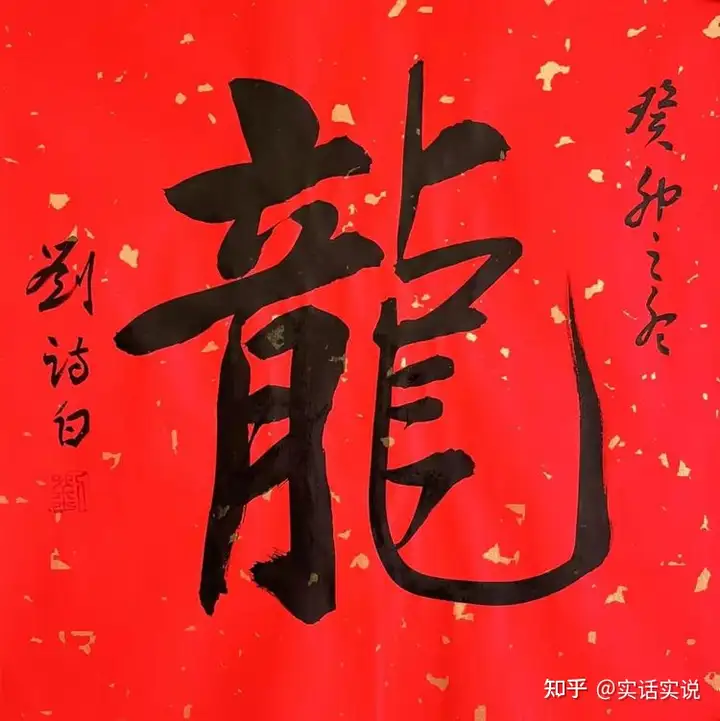 癸卯之冬
龍
劉诗白
劉
知乎 @实话实说